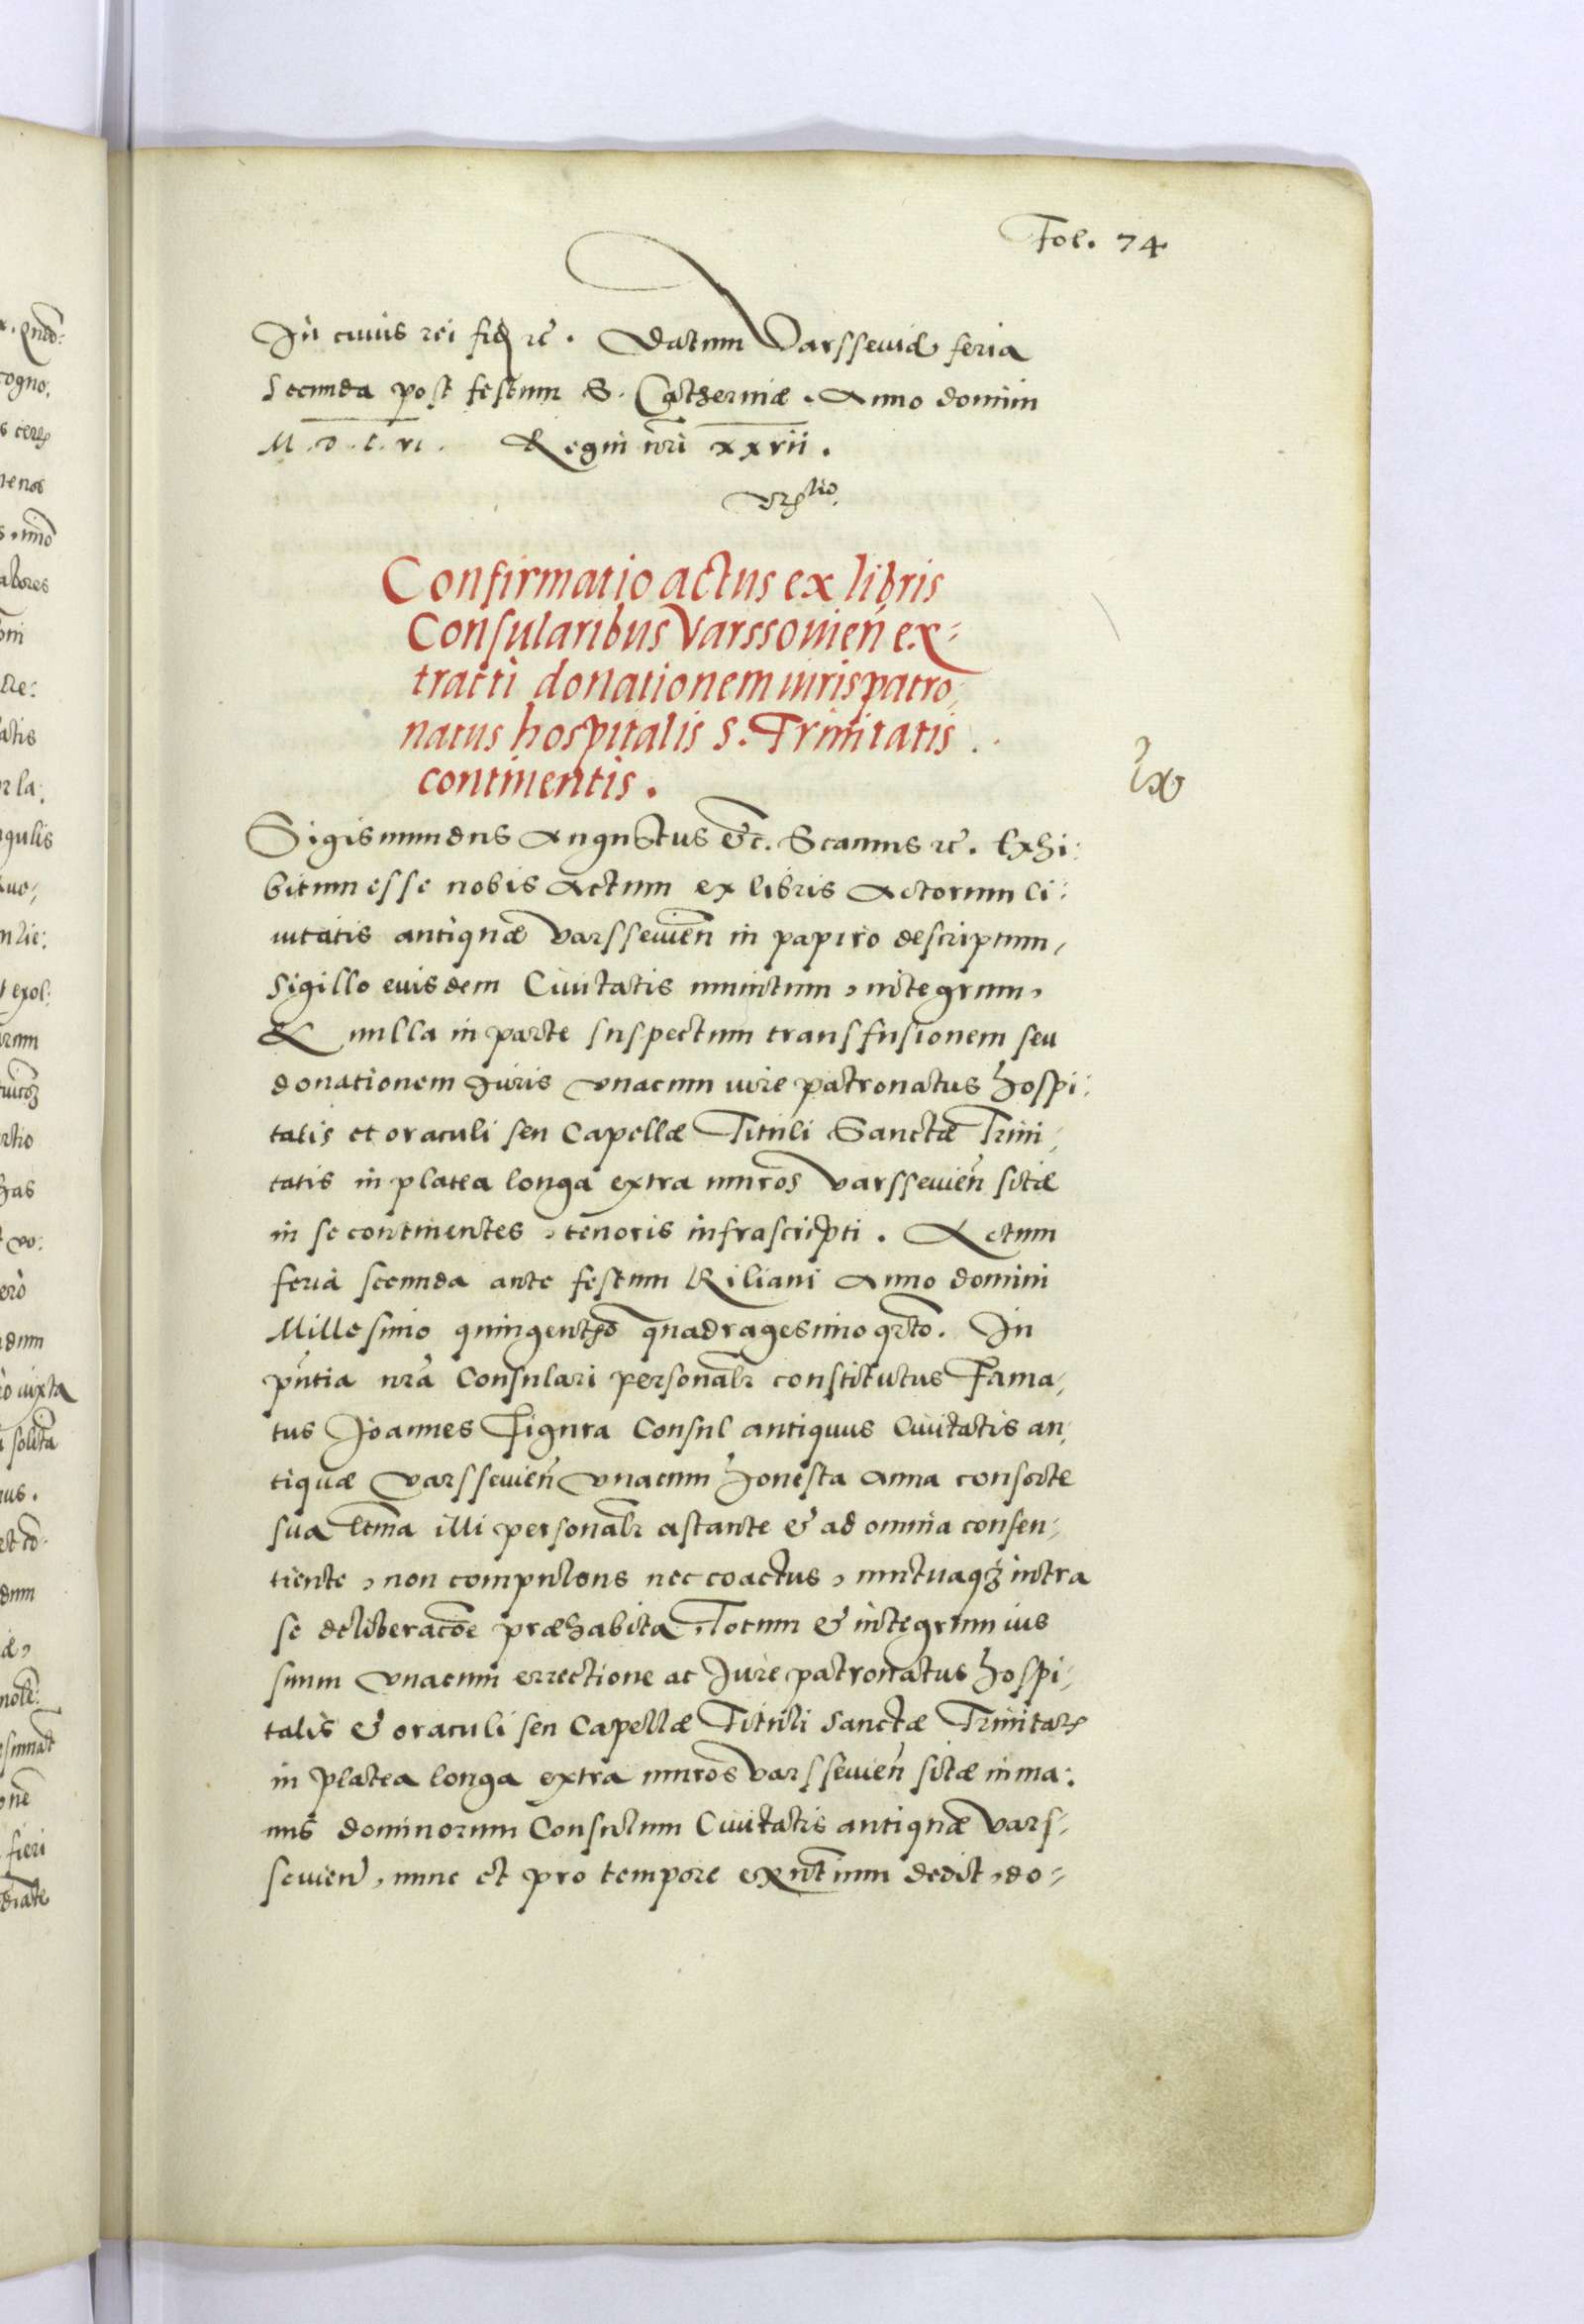 Fol. 74
In cuius rei fid. etc. Datum Varsseviæ feria
secunda post festum S. Catherinæ. Anno domini
M.D.L.VI. Regni nrī xxvii.
Confirmatio actus ex libris
Consularibus Varssovien̄ ex-
tracti donationem iuris patro-
natus hospitalis S. Trinitatis
continentis.
Sigismundus Augustus &c. Scimus etc. Exhi:
bitum esse nobis Actum ex libris Actorum Ci:
vitatis antiquæ Varssevien̄ in papiro descriptum,
sigillo eiusdem Civitatis munitum, integrum,
& nulla in parte suspectum transfusionem seu
donationem Juris unacum iure patronatus hospi:
talis et oraculi seu Capellæ Tituli Sanctæ Trini-
tatis in platea longa extra muros Varssevien̄ sitæ
in se continentes, tenoris infrascripti. Actum
feria secunda ante festum Kiliani Anno domini
Millesimo quingentēo quadragesimo qrto. In
pn̄tia nrā Consulari personalr constitutus Fama-
tus Joannes Figura Consul antiquus Civitatis an-
tiquæ Varssevien̄ unacum honesta Anna consorte
sua ltm̄a illi personalr astante & ad omnia consen-
tiente, non compulsus nec coactus, mutuaqꝫ intra
se deliberacōe præhabita, Totum & integrum ius
suum unacum errectione ac Jure patronatus hospi-
talis & oraculi seu Capellæ Tituli Sanctæ Trinitatꝭ
in platea longa extra muros Varssevien̄ sitæ in ma:
nus dominorum Consulum Civitatis antiquæ Vars-
sevien̄, nunc et pro tempore exn̄tium dedit, do-